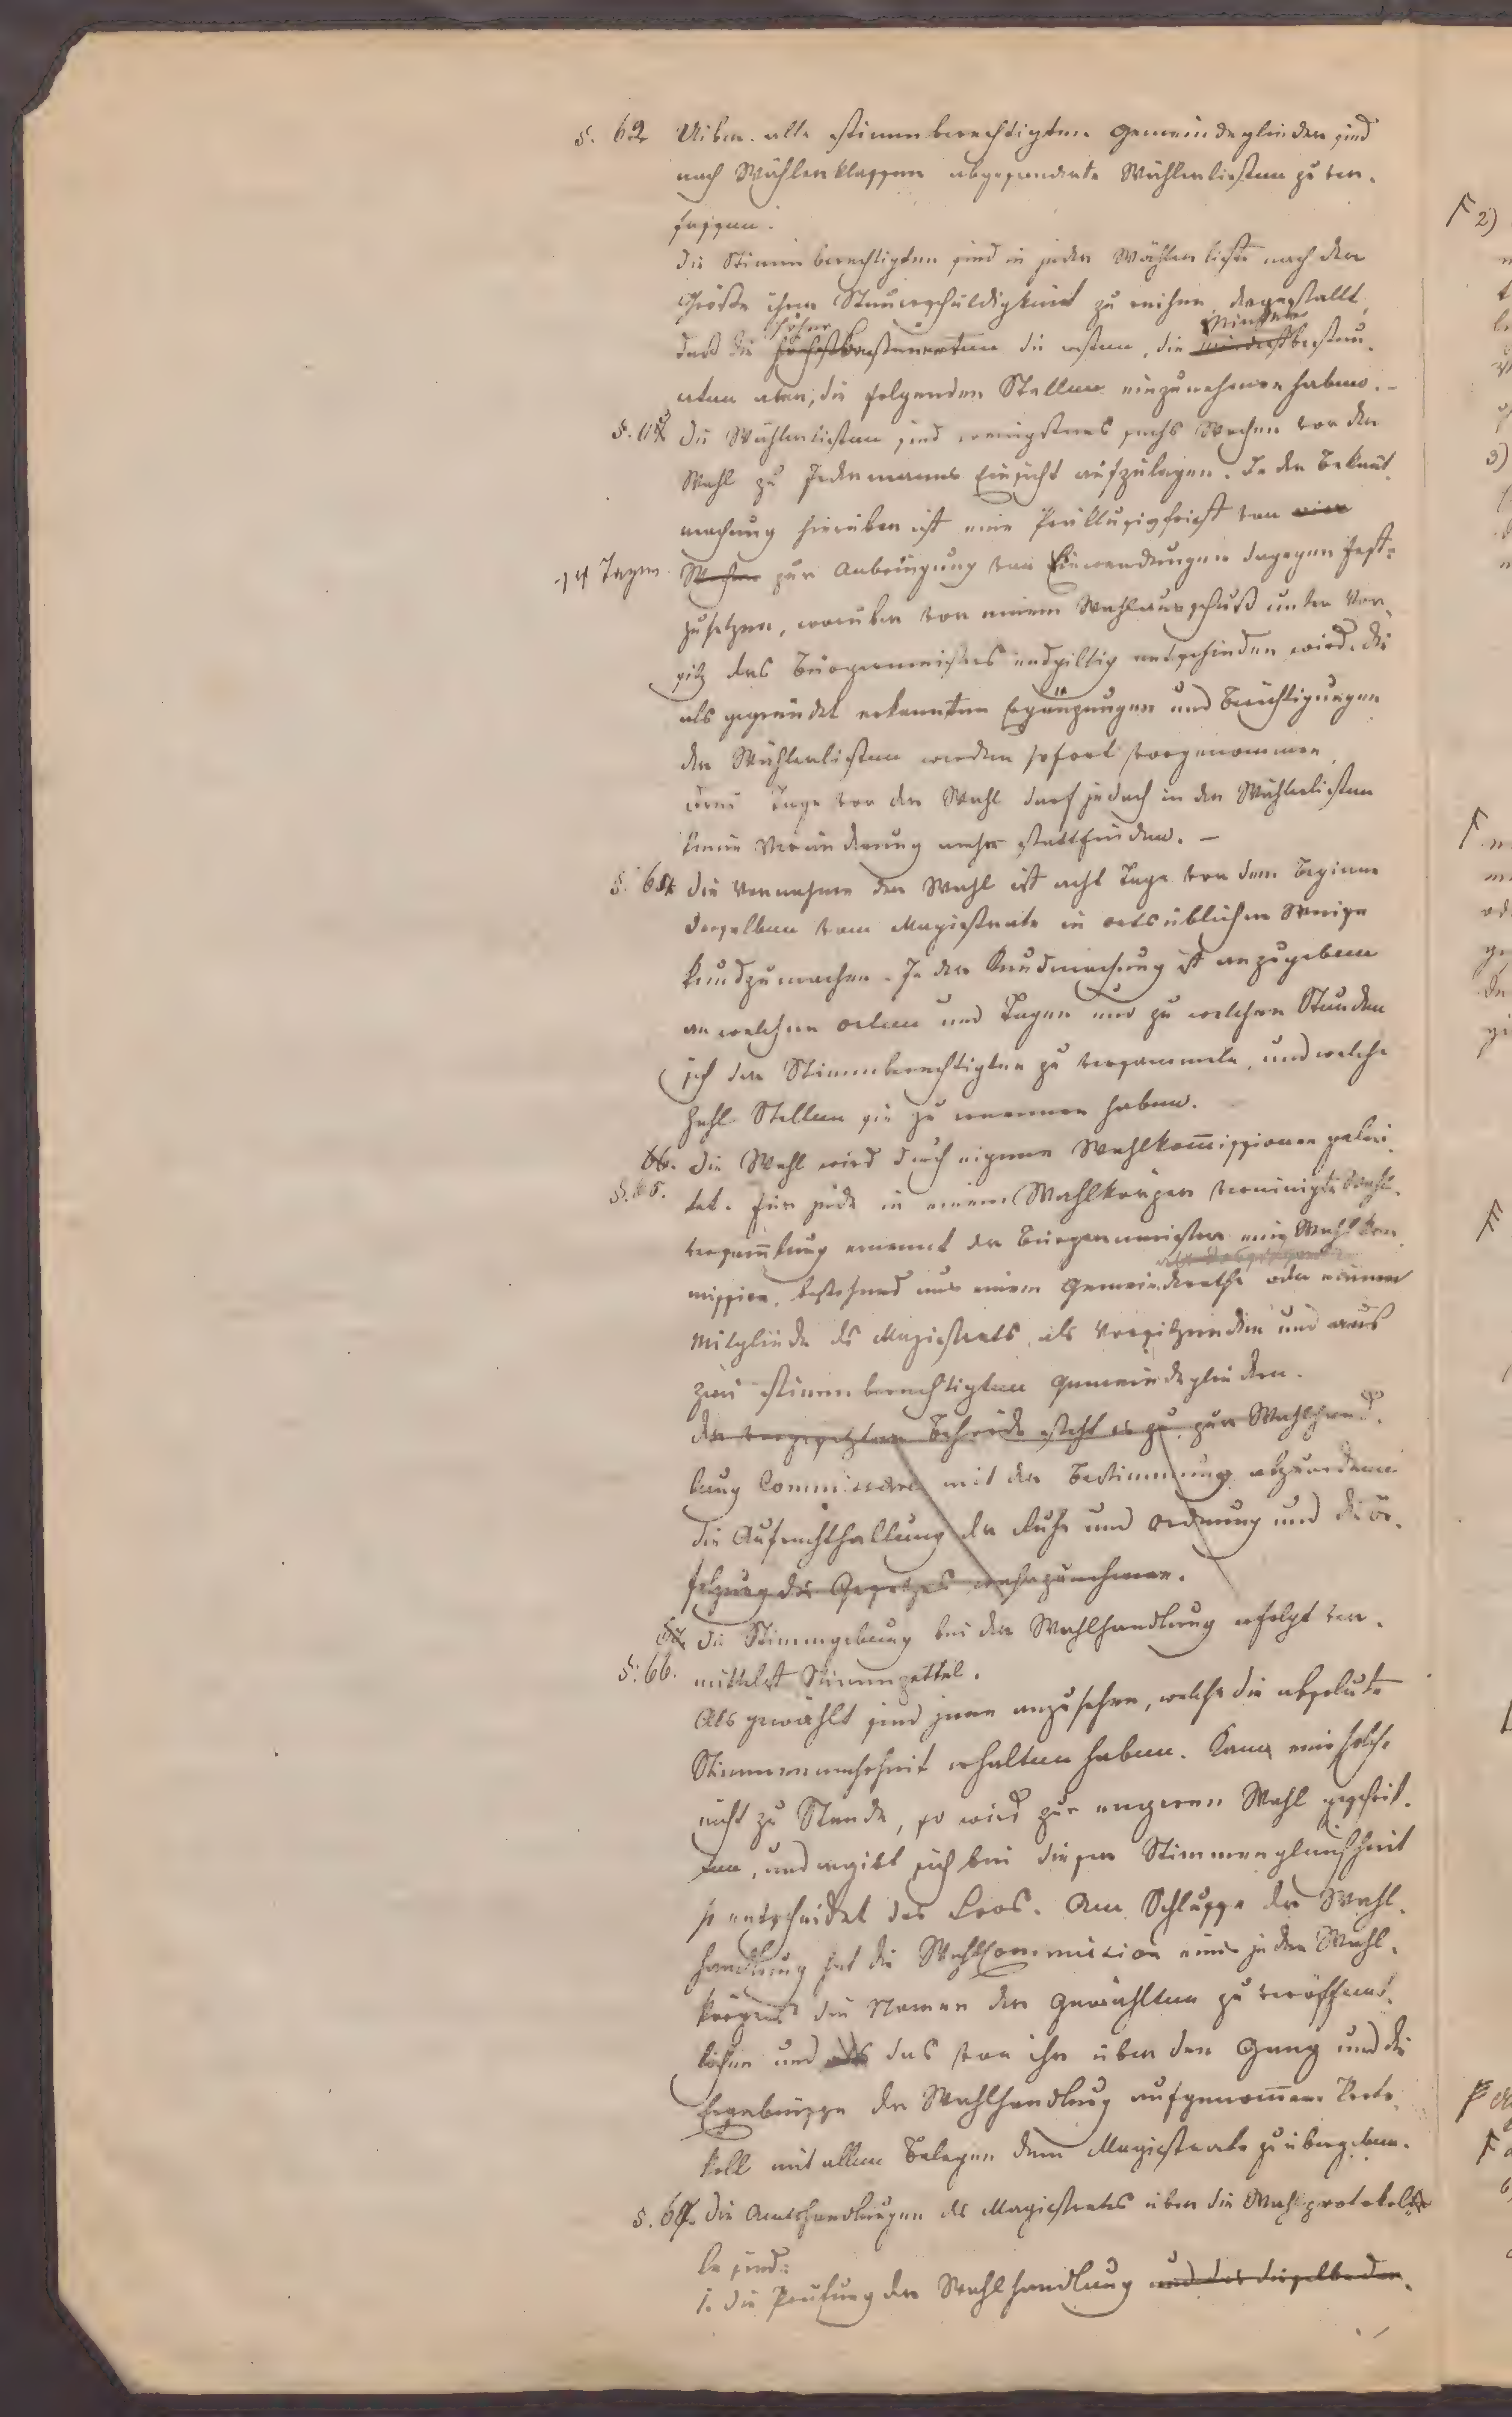 §. 62 Uiber alle stimmberechtigten Gemeindeglieder sind
nach Wählerklassen abgesonderte Wählerlisten zu ver-
fassen.
Die Stimmberechtigten sind in jeder Wählerliste nach der
Größe ihrer Steuerschuldigkeit zu reihen, dergestallt,
höher minder
daß die höchstbesteuerten die ersten, die mindestbesteu-
erten aber, die folgenden Stellen einzunehmen haben. –
§. 63 Die Wählerlisten sind wenigstens sechs Wochen vor der
Wahl zu Jedermanns Einsicht aufzulegen. In der Bekant-
machung hierüber ist eine Präklusivfrist von vier
14 Tagen Wochen zur Anbringung von Einwendungen dagegen fest-
zusetzen, worüber von einem Wahlausschuß unter Vor-
sitz des Bürgermeisters endgiltig entschieden wird. Die
als gegründet erkannten Ergänzungen und Berichtigungen
der Wählerlisten werden sofort vorgenommen,
drei Tage vor der Wahl darf jedoch in den Wählerlisten
keine Veränderung mehr stattfinden. –
§. 64 Die Vornahme der Wahl ist acht Tage vor dem Beginne
derselben vom Magistrate in ortsüblicher Weise
kundzumachen. In der Kundmachung ist anzugeben
an welchen Orten und Tagen und zu welchen Stunden
sich die Stimmberechtigten zu versammeln, und welche
Zahl Stellen sie zu ernennen haben.
66. Die Wahl wird durch eigene Wahlkom̅issionen gelei-
§. 65. tet. Für jede in einem Wahlkörper vereinigte Wahl-
versam̅lung ernennt der Bürgermeister eine Wahlkom-
mission, bestehend aus einem Gemeinderathe oder einem
Mitgliede des Magistrats, als Vorsitzenden und aus
zwei stimmberechtigten Gemeindegliedern.
Der vorgesetzten Behörde steht es zu, zur Wahlhand-
lung Commissäre mit der Bestimmung abzuordnen
die Aufrechthaltung der Ruhe und Ordnung und die Be-
folgung des Gesetzes wahrzunehmen.
67 Die Stimmgebung bei der Wahlhandlung erfolgt ver-
§. 66. mittelst Stimmzettel.
Als gewählt sind jene anzusehen, welche die absolute
Stimmenmehrheit erhalten haben. Kam eine solche
nicht zu Stande, so wird zur engeren Wahl geschrit-
ten, und ergibt sich bei dieser Stimmengleichheit
so entscheidet das Loos. Am Schlusse der Wahl-
handlung hat die Wahlcommission eines jeden Wahl-
körpers die Namen der Gewählten zu veröffent-
lichen und das von ihr über den Gang und die
Ergebnisse der Wahlhandlung aufgenom̅ene Proto-
koll mit allen Belegen dem Magistrate zu übergeben.
§. 67. Die Amtshandlungen des Magistrates über die Wahlprotokol-
le sind:
1. Die Prüfung der Wahlhandlung und der dieselbe